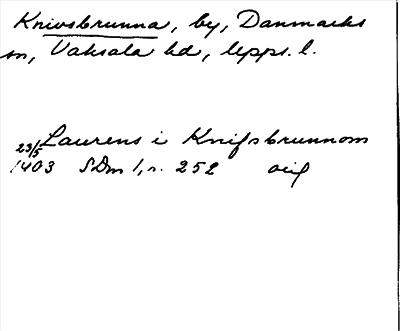 Knivsbrunna, by, Danmarks
sn, Vaksala hd, Upps. l.
Laurens i Knifsbrunnom
23/5 1403 SDm 1, s. 252 orig